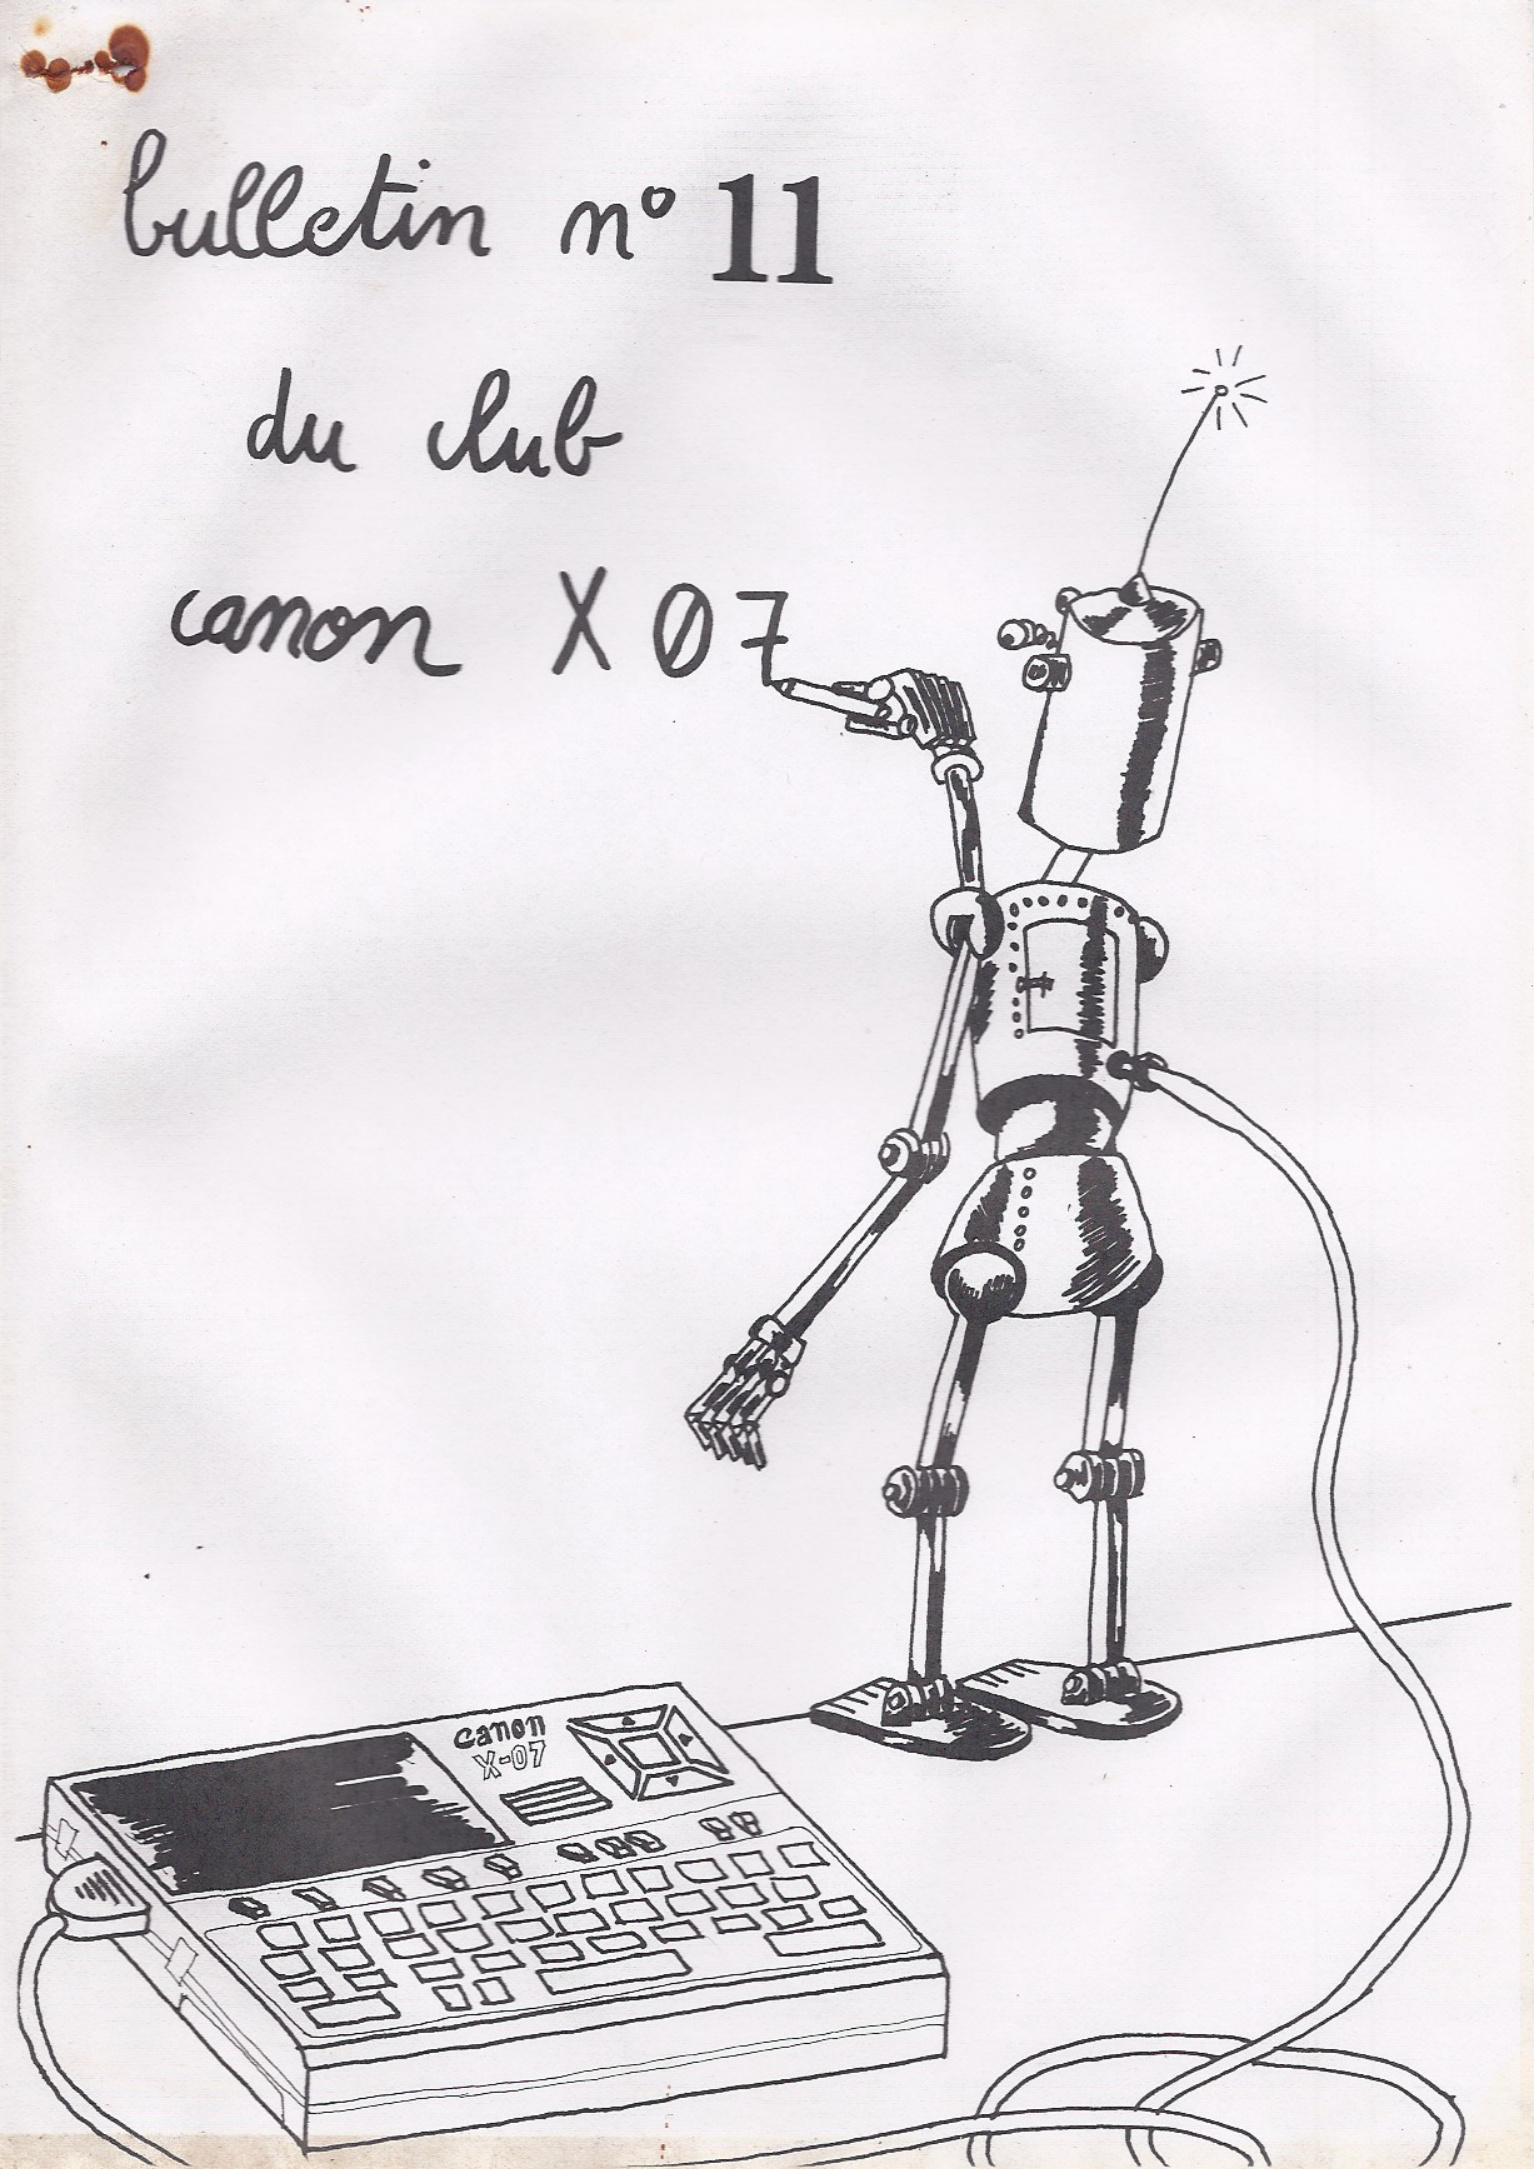 bulletin n° 11
du club
canon X 07
canon
X-07